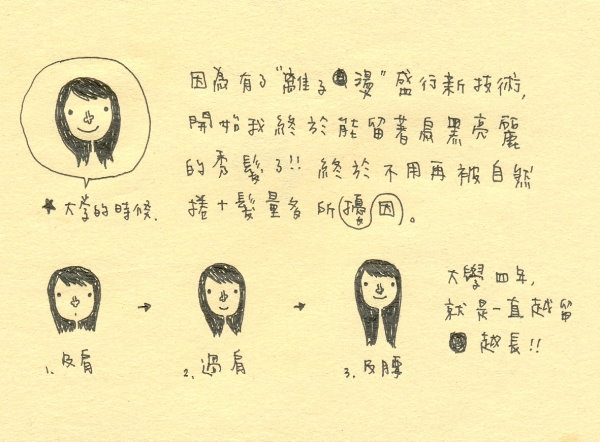 因為有了"離子燙"盛行新技術,
開始我終於能留著烏黑亮麗
的秀髮了!! 終於不用再被自然
捲+髮量多所擾因。
大学的時候.
大學四年,
就是一直越留
越長!!
1. 及肩
2. 過肩
3. 及腰